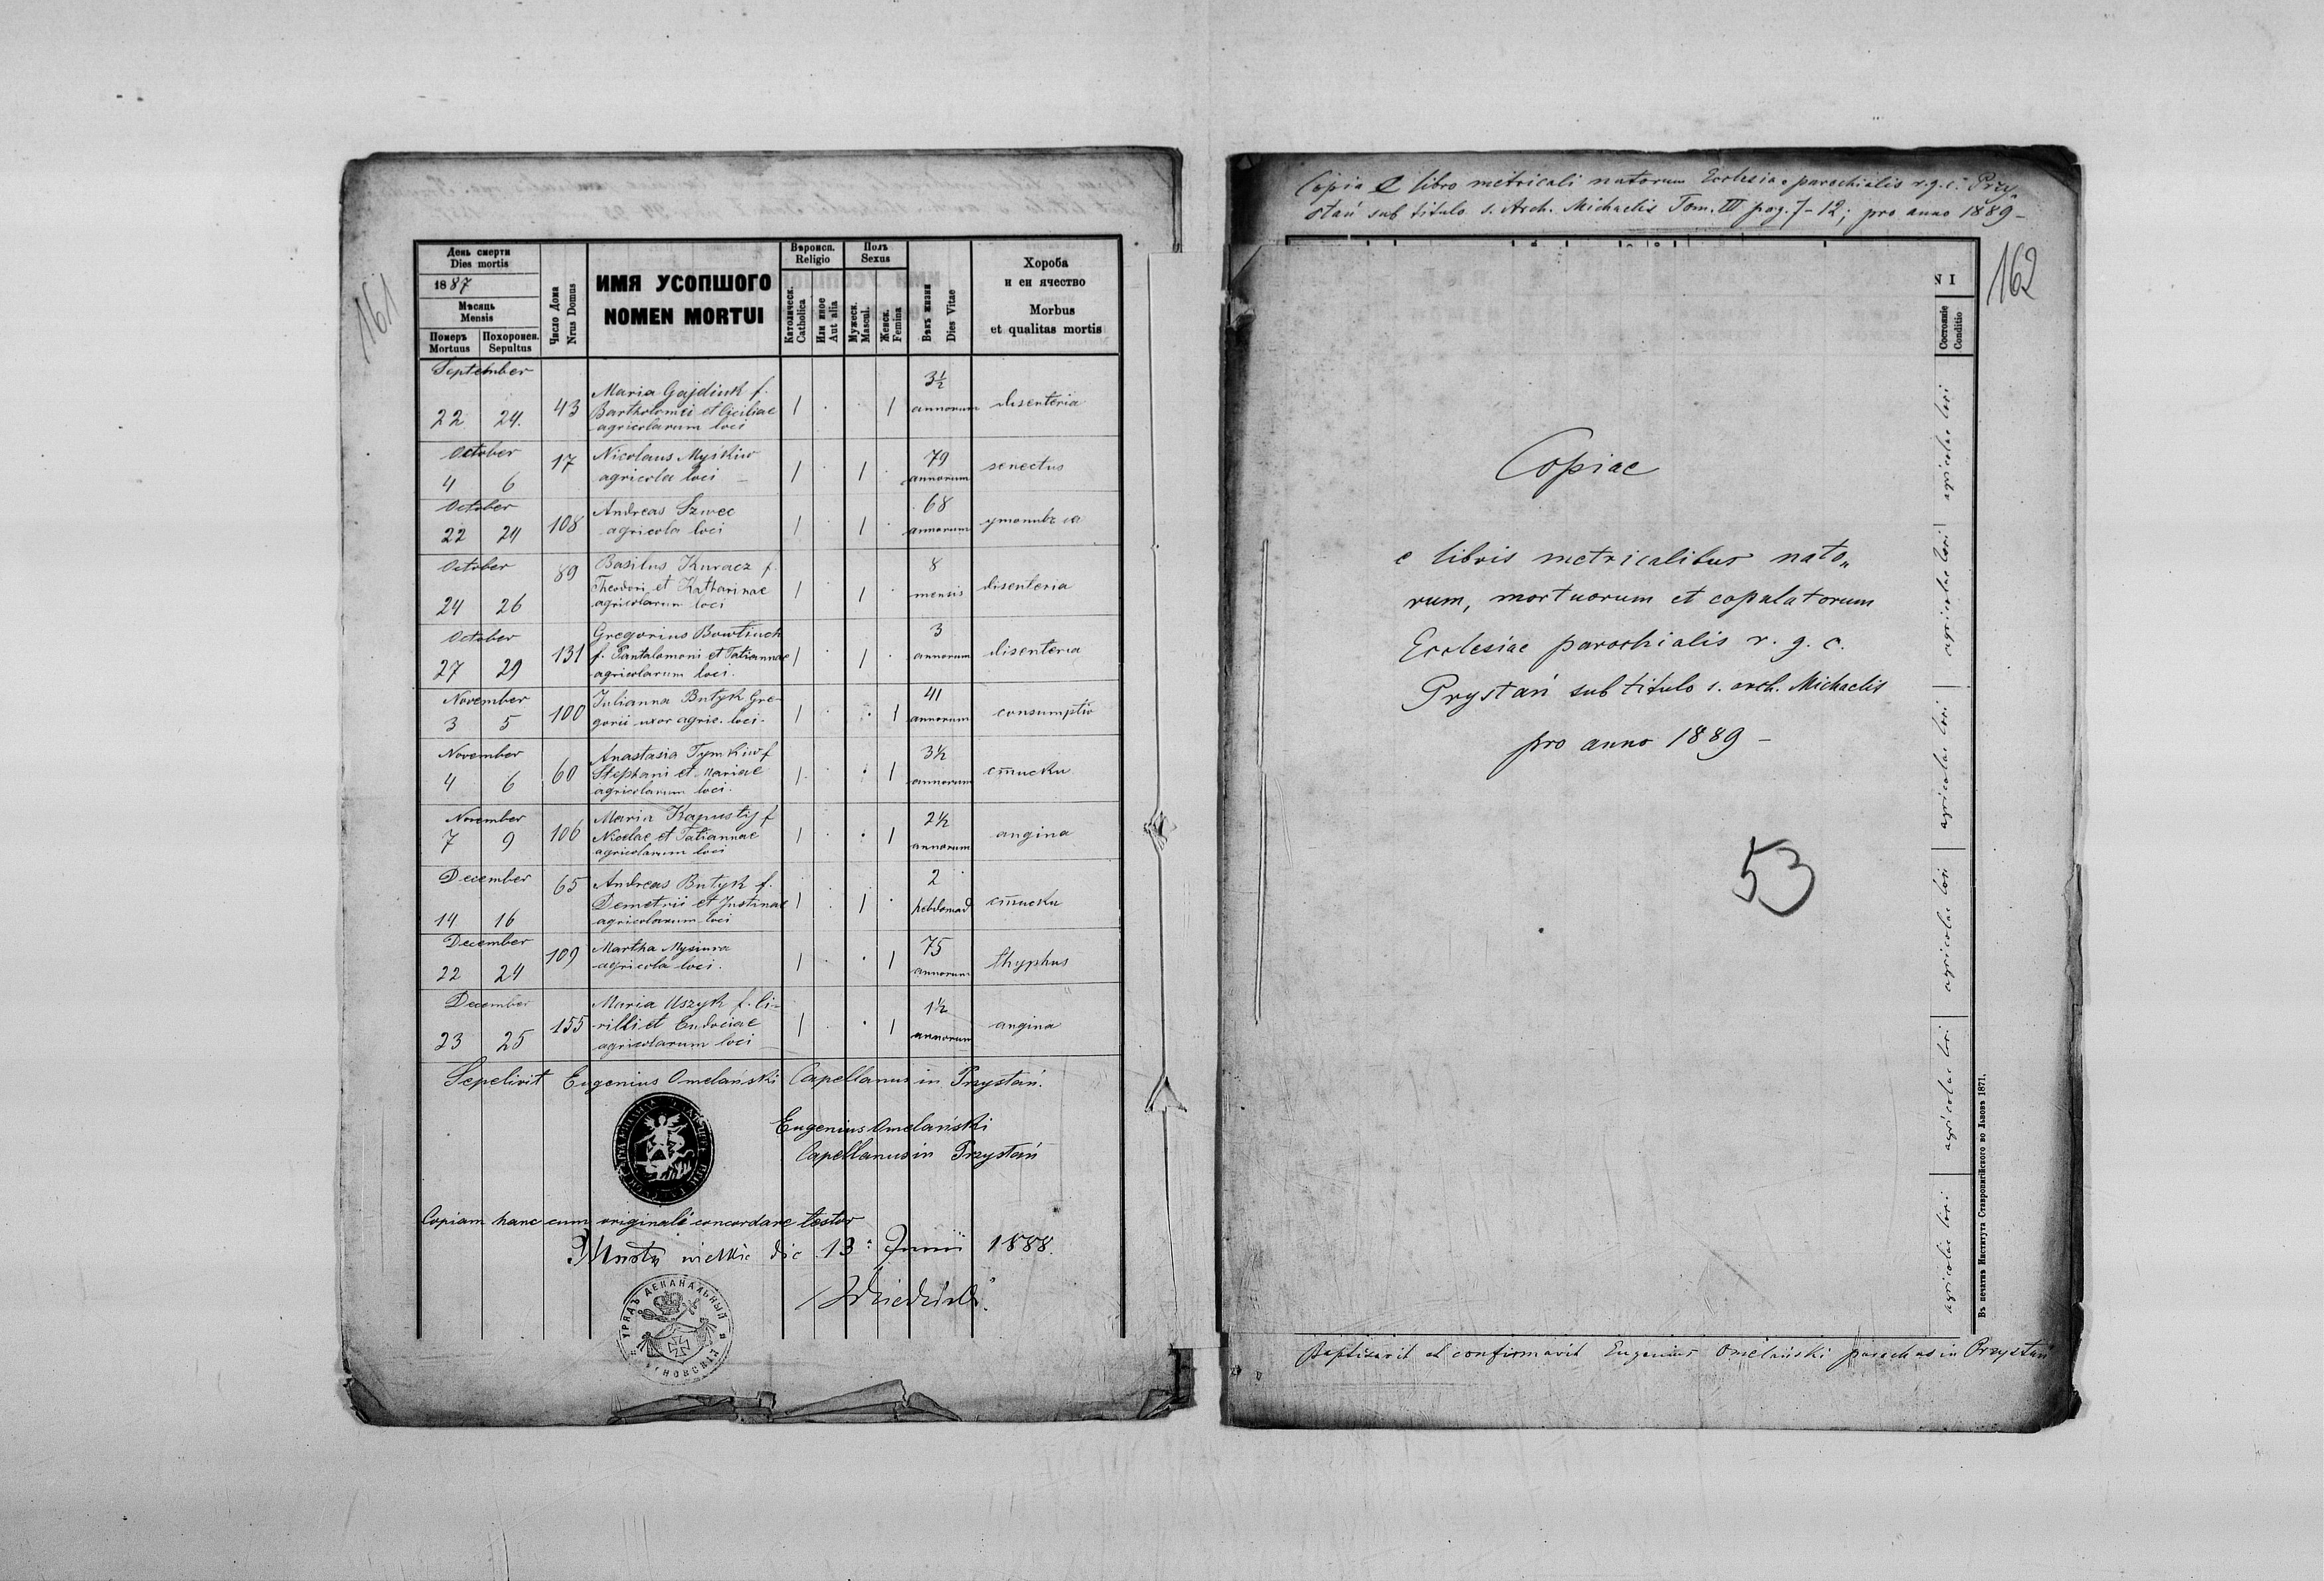 161
День смерти
Dies mortis
1887
Мѣсяць
Mensis
Померъ
Mortuus
Похоронен.
Sepultus
Число Дома
Nrus Domus
ИМЯ УСОПШОГО
NOMEN MORTUI
Вѣроисп.
Religio
Католическ.
Catholica
Или иное
Aut alia
Полъ
Sexus
Мужеск.
Mascul.
Женск.
Femina
Вѣкъ жизни
Dies Vitae
Хороба
и еи ячество
Morbus
et qualitas mortis
September
22 24. 43 Maria Gajdiuk f. 3½
Bartholomei et Ceciliae 1 . . 1 annorum disenteria
agricolarum loci
October
4 6 17 Nicolaus Myśkiw 79
agricola loci 1 . 1 . annorum senectus
October
22 24 108 Andreas Szwec 68
agricola loci 1 . 1 . annorum
October
24 26 89 Basilus Kuracz f. 8
Theodori et Katharinae 1 . 1 . mensis disenteria
agricolarum loci
October
27 29 131 Gregorius Bowtiuch 3
f. Pantalomoni et Tatiannae 1 . 1 . annorum disenteria
agricolarum loci.
November
3 5 100 Julianna Butyk Gre- 41
gorii uxor agric. loci. 1 . . 1 annorum consumptio
November
4 6 60 Anastasia Tymkiw f 3½
Stephani et Mariae 1 . . 1 annorum стиски
agricolarum loci.
November
7 9 106 Maria Kapustij f 2½
Nicolae et Tatiannae 1 . . 1 annorum angina
agricolarum loci
December
14 16 65 Andreas Butyk f. 2
Demetrii et Justinae 1 . 1 . hebdomad стиски
agricolarum loci
December
22 24 109 Martha 75
agricola loci. 1 . . 1 annorum thyphus
December
23 25 155 Maria Uszyk f. Ci- 1½
rilli et Eudociae 1 . . 1 annorum angina
agricolarum loci
Sepelivit Eugenius Omelański Capellanus in Przystań.
Eugenius Omelański
Capellanus in Przystań
Copiam hanc cum originale concordare testor
Mosty wielkie die 13 Junii 1888.
УРЯДЪ ДЕКАНАЛЬНЫЙ
Copia e libro metricali natorum Ecclesiae parochialis r.g.c. Przy„
stań sub titulo s. Arch. Michaelis Tom. III pag. 7-12; pro anno 1889 –
162
N I
Состояніе
Conditio
agricolae loci
agricolae loci
agricolae loci
agricolae loci
agricolae loci
agricolae loci
Copiae
e libris metricalibus nato„
rum, mortuorum et copulatorum
Ecclesiae parochialis r. g. c.
Prystań sub titulo s. arch. Michaelis
pro anno 1889 –
53
Въ печатнѣ Института Ставропигійского во Львовѣ 1871.
Baptisavit et confirmavit Eugenius Omelański parochus in Przystań